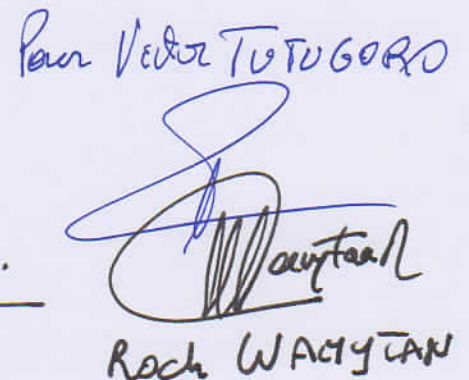 Pour Victor TUTUGORO
Wamytan
Roch WAMYTAN